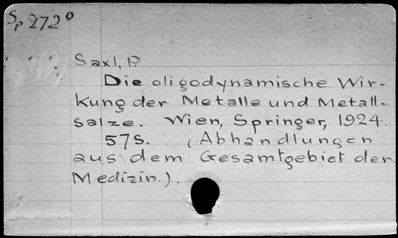 Sp 272°
Saxl, P.
Die oligodynamische Wir-
kung der Metalle und Metall-
salze. Wien, Springer, 1924.
57S. (Abhandlungen
aus dem Gesamtgebiet der
Medizin.).